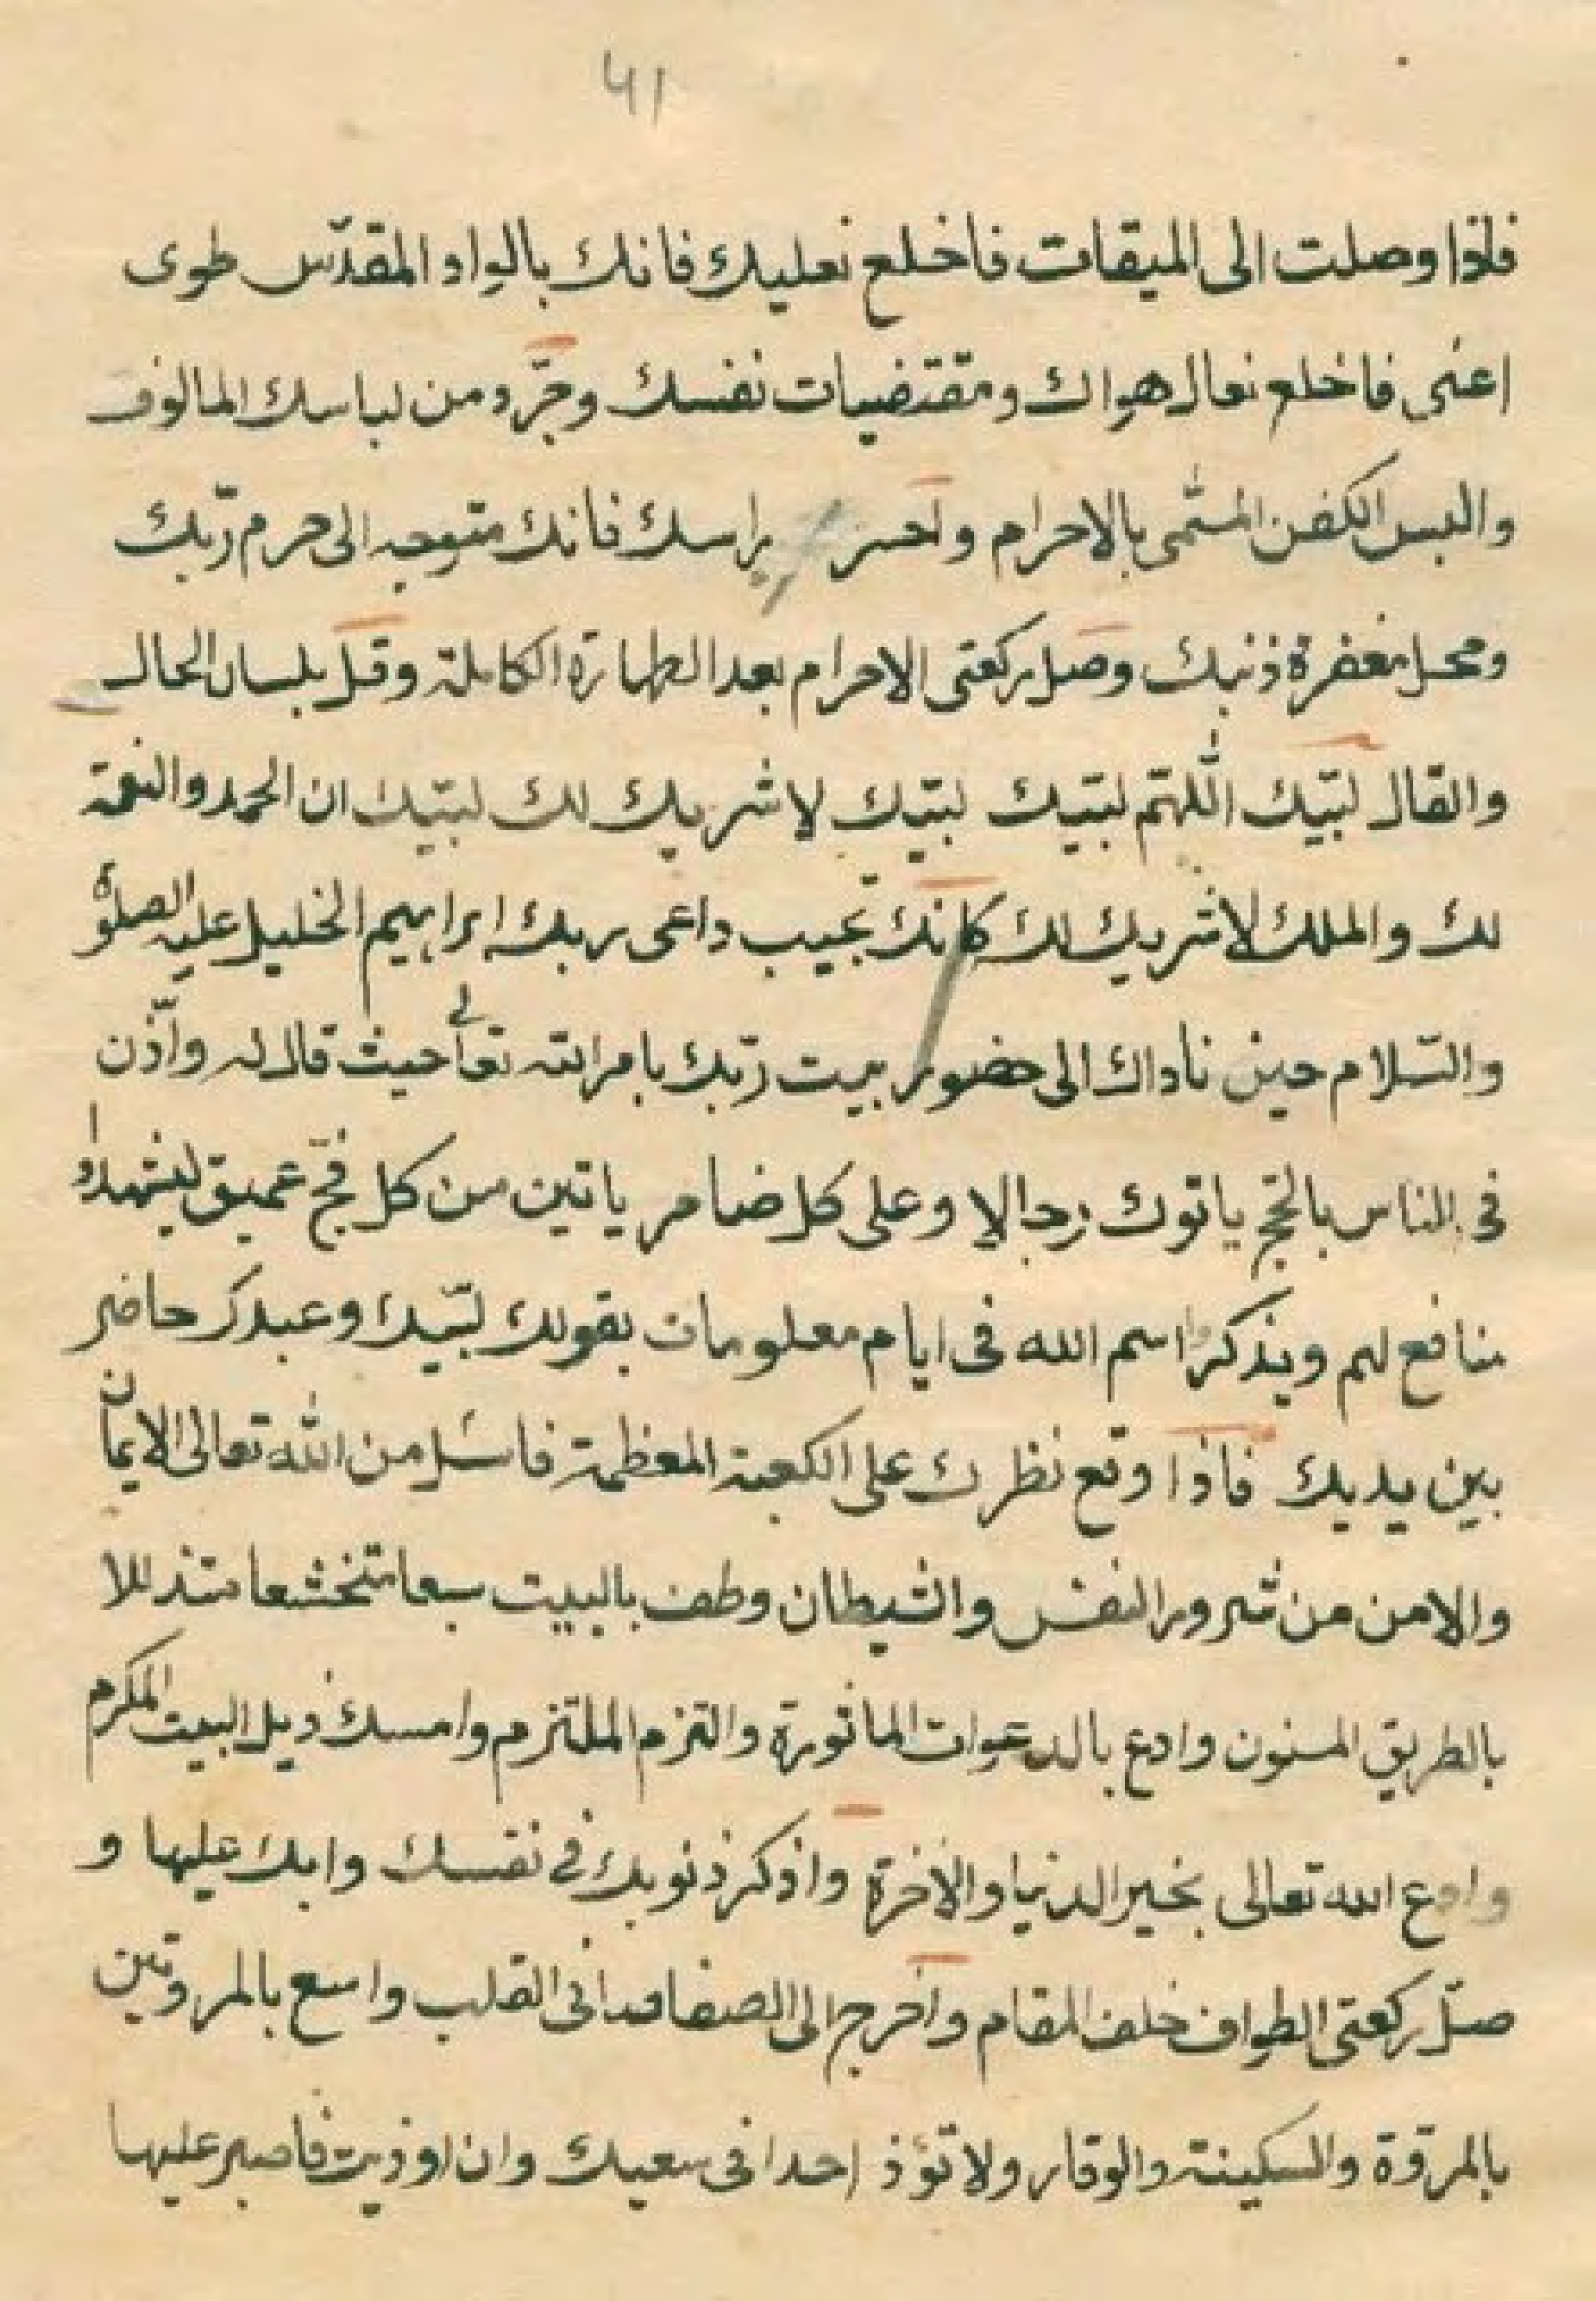 41
فاذا وصلت الى الميقات فاخلع نعليك فانك بالواد المقدّس طوى
اعنى فاخلع نعال هواك ومقتضيات نفسك وتجرّد من لباسك المالوف
والبس الكفن المسمّى بالاحرام واحسر براسك فانك متوجه الى حرم ربّك
ومحل مغفرة ذنبك وصل ركعتى الاحرام بعد الطهارة الكاملة وقل بلسان الحال
والقال لبّيك اللّهمّ لبّيك لبّيك لا شريك لك لبّيك ان الحمد والنعمة
لك والملك لا شريك لك كانك تجيب داعى ربك ابراهيم الخليل عليه الصلوة
والسّلام حين ناداك الى حضور بيت ربّك بامر الله تعالى حيث قال له واذّن
فى الناس بالحجّ ياتوك رجالا وعلى كل ضامر ياتين من كل فجّ عميق ليشهدوا
منافع لهم ويذكروا اسم الله فى ايام معلومات بقولك لبّيك وعبدك حاضر
بين يديك فاذا وقع نظرك على الكعبة المعظمة فاسئل من الله تعالى الايمان
والامن من شرور النفس والشيطان وطف بالبيت سبعا متخشعا متذللا
بالطريق المسنون وادع بالدعوات الماثورة والتزم الملتزم وامسك ذيل البيت المكرم
وادع الله تعالى بخير الدنيا والاخرة واذكر ذنوبك فى نفسك وابك عليها و
صلّ ركعتى الطواف خلف المقام واخرج الى الصفا فى القلب واسع بالمروتين
بالمروّة والسكينة والوقار ولا تؤذ احدا فى سعيك وان اوذيت فاصبر عليها